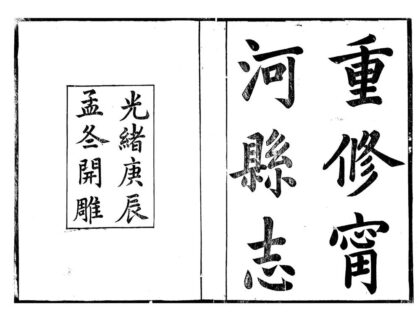 重修甯
河縣志
光緒庚辰
孟冬開雕